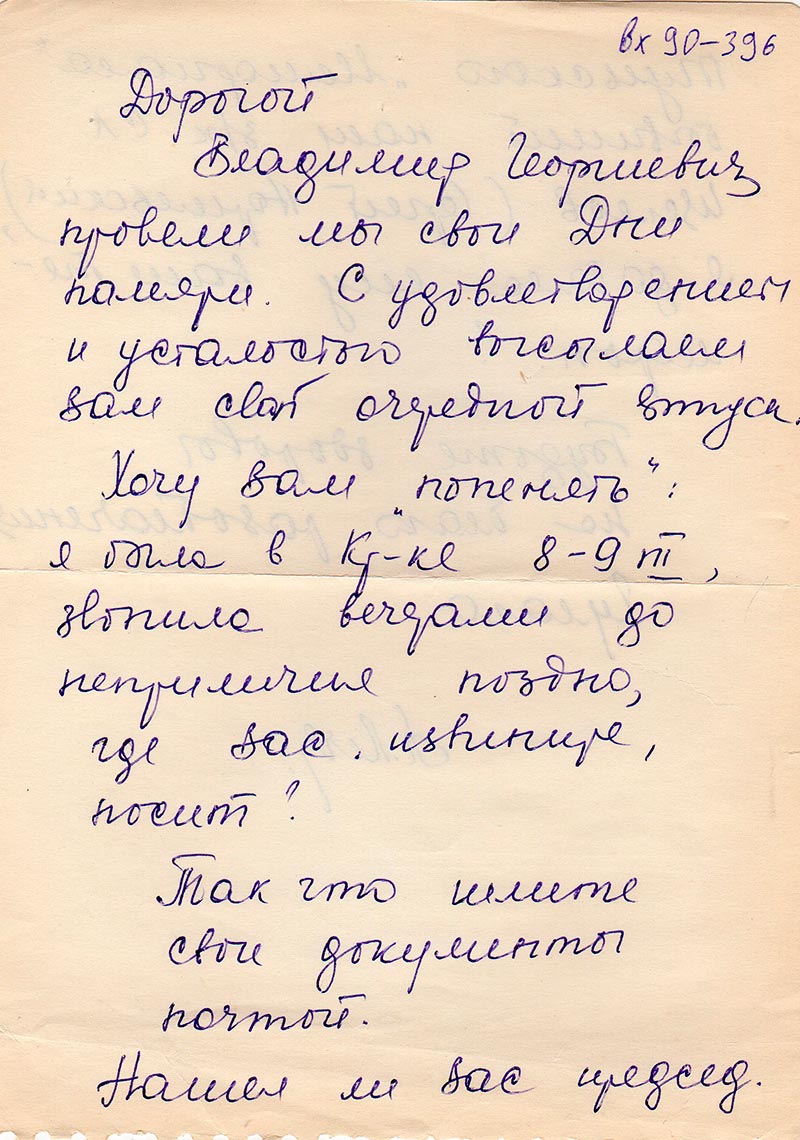 вх 90-396
Дорогой
Владимир Георгиевич
провели мы свои Дни
памяти. С удовлетворением
и усталостью высылаем
вам свой очередной выпуск.
Хочу вам "попенять":
я была в Кр-ке 8-9 III,
звонила вечерами до
неприличия поздно,
где вас, извините,
носит?
Так что шлите
свои документы
почтой.
Нашел ли вас председ.